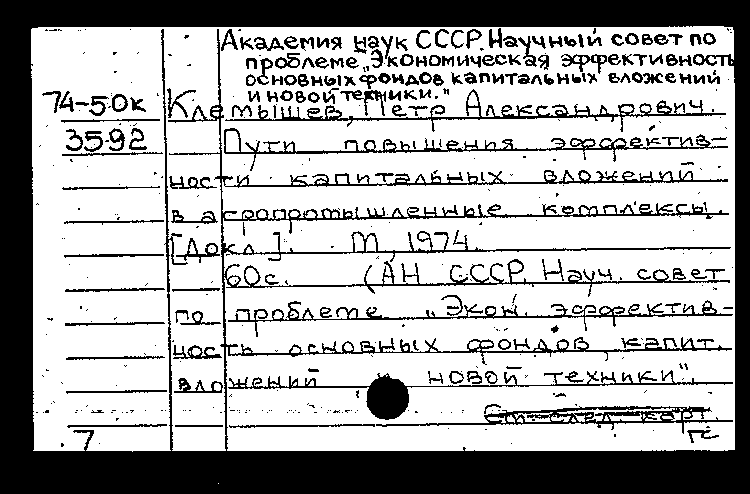 Академия наук СССР. Научный совет по
проблеме „Экономическая эффективность
основных фондов капитальных вложений
и новой техники."
74-5-0к Клемышев, Петр Александрович.
3592 Пути повышения эффектив-
ности капитальных вложений
в агропромышленные комплексы.
[Докл.]. М., 1974.
60с. (АН СССР. Науч. совет
по проблеме „Экон. эффектив-
ность основных фондов, капит.
вложений и новой техники".
См. след. карт.
7 гс